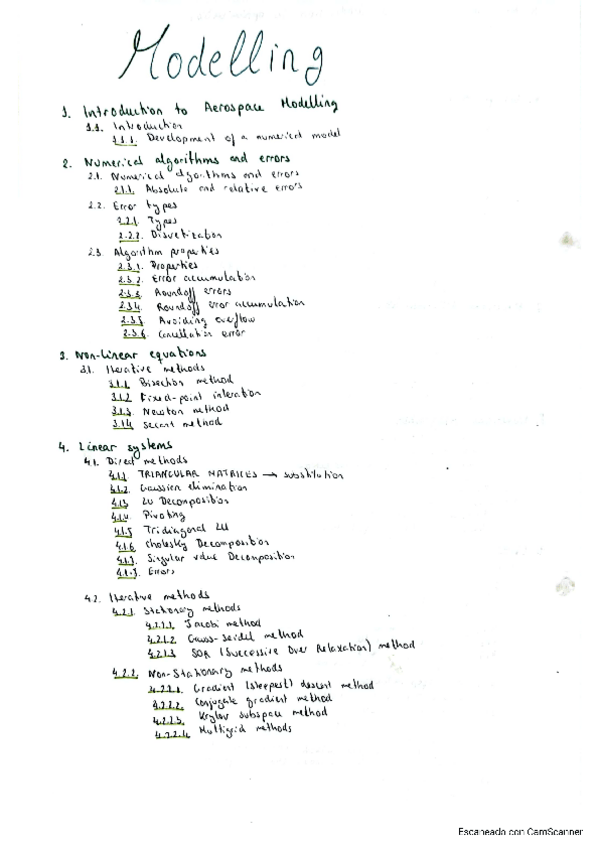 Modelling
1. Introduction to Aerospace Modelling
1.1. Introduction
1.1.1. Development of a numerical model
2. Numerical algorithms and errors
2.1. Numerical algorithms and errors
2.1.1. Absolute and relative errors
2.2. Error types
2.2.1. Types
2.2.2. Discretization
2.3. Algorithm properties
2.3.1. Properties
2.3.2. Error accumulation
2.3.3. Roundoff errors
2.3.4. Roundoff error accumulation
2.3.5. Avoiding overflow
2.3.6. Cancellation error
3. Non-linear equations
3.1. Iterative methods
3.1.1. Bisection method
3.1.2. Fixed-point interation
3.1.3. Newton method
3.1.4. Secant method
4. Linear systems
4.1. Direct methods
4.1.1. TRIANGULAR MATRICES → substitution
4.1.2. Gaussian elimination
4.1.3. LU Decomposition
4.1.4. Pivoting
4.1.5. Tridiagonal LU
4.1.6. Cholesky Decomposition
4.1.7. Singular value Decomposition
Errors
4.2. Iterative methods
4.2.1. Stationary methods
4.2.1.1. Jacobi method
4.2.1.2. Gauss-Seidel method
4.2.1.3. SOR (Successive Over Relaxation) method
4.2.2. Non-Stationary methods
4.2.2.1. Gradient (steepest) descent method
4.2.2.2. Conjugate gradient method
4.2.2.3. Krylov subspace method
4.2.2.4. Multigrid methods
Escaneado con CamScanner